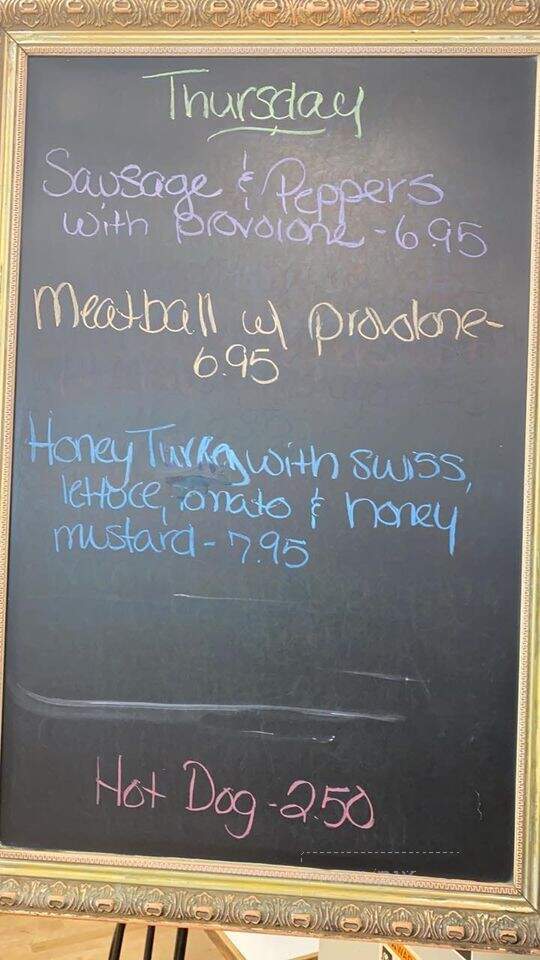 Thursday
Sausage & Peppers
with provolone - 6.95
Meatball w/ provolone-
6.95
Honey Turkey with swiss,
lettoce, omato & honey
mustard - 7.95
Hot Dog - 2.50